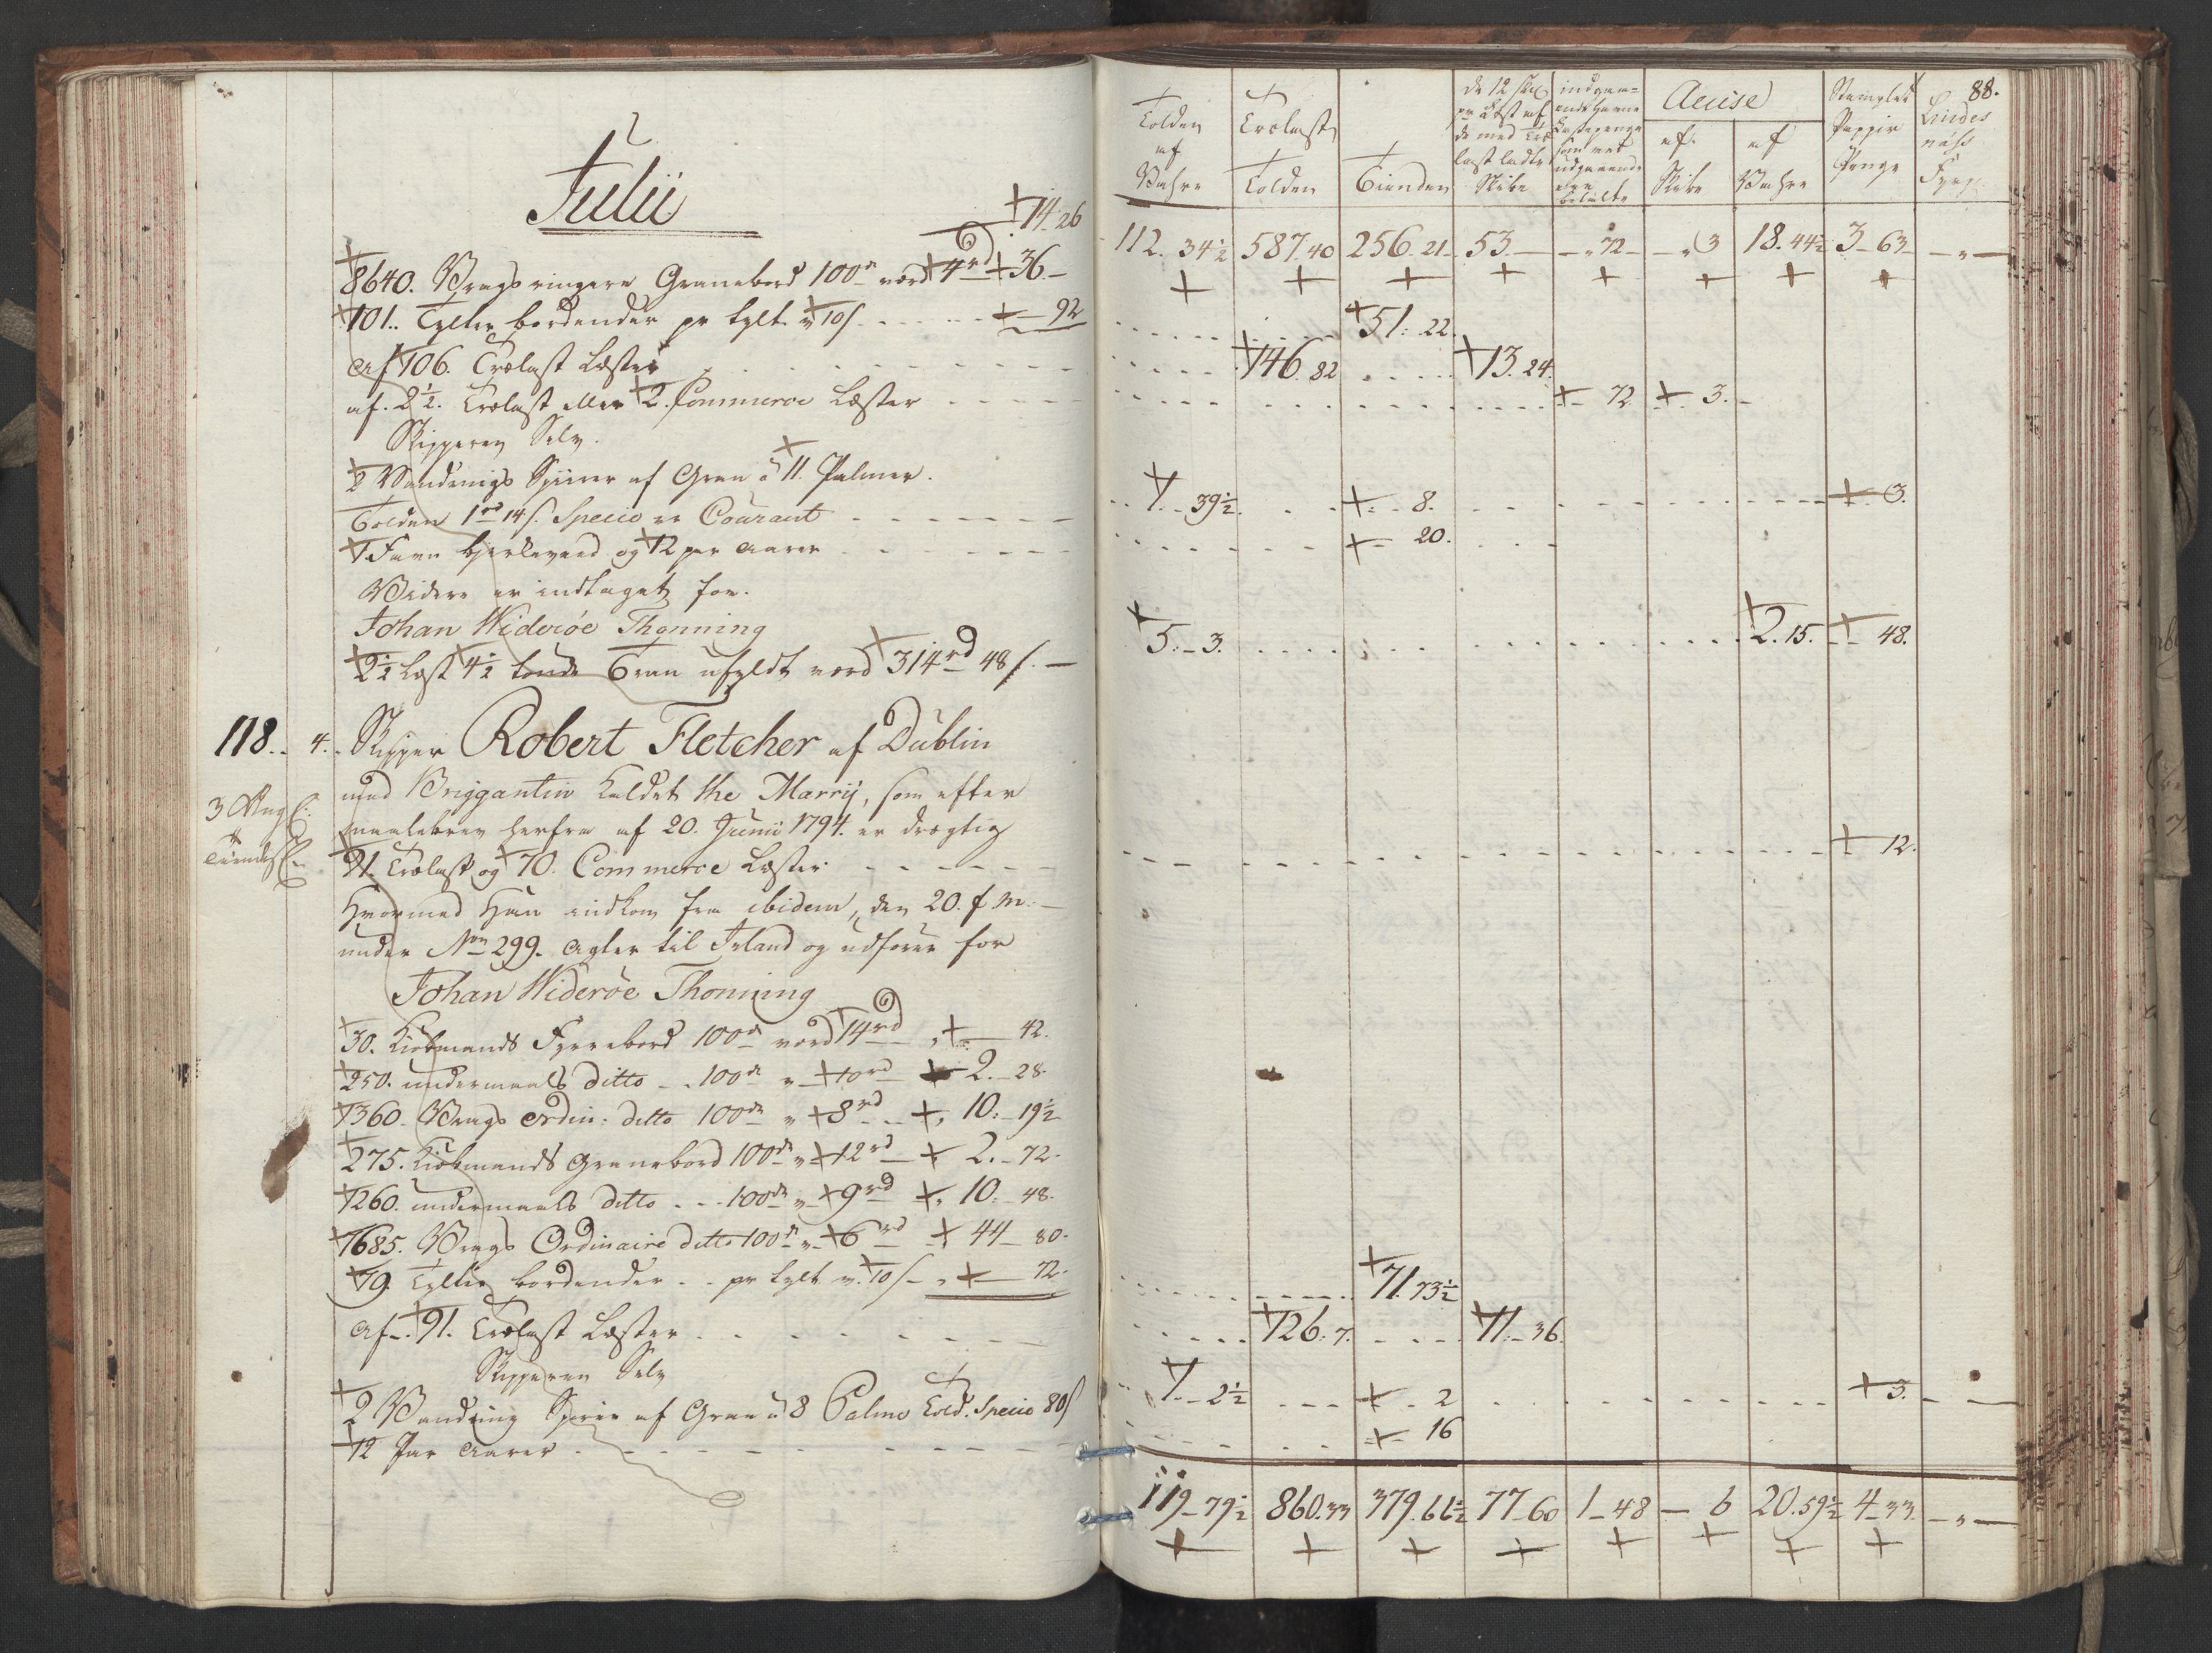 Julii
14. 26
8640. Vrags ringere Granebord 100de værd 4rd 36. –
101. Tylter bordender pr tylt a 10 s. – 92
af 106. Trælast Læster
af. 2 1/2. Trælast eller 2. Commerce Læster
Skipperen Selv.
2 Vandrings Spirer af Gran a 11. Palmer.
Tolden 1rd 14 s. Specie er Courant
1. Favn og 12 par Aarer
Videre er indtaget for.
Johan Widerøe Thonning
2 1/2 Læst 4 1/2 tønde Tran ufyldt værd 314rd 48 s. –
118. 4. Skipper Robert Fletcher af Dublin
med Briggantin kaldet the Marrij, som efter
maalebrev herfra af 20. Junii 1794. er drægtig
91. Trælast og 70. Commerce Læster
Hvormed Han indkom fra ibidem, den 20. f. m.
under No 299. agter til Irland og udfører for
Johan Widerøe Thonning
30. Kiøbmands Fyrrebord 100de værd 14rd – 42.
250. undermaals ditto 100de " 10rd 2. 28.
1360. Vrags ordin: ditto 100de " 8rd 10. 19 1/2
275. Kiøbmands Granebord 100de " 12rd 2. 72.
1260. undermaals ditto 100de " 9rd 10. 48.
7685. Vrags Ordinaire ditto 100de " 6rd 44 80.
79. Tylter bordender pr tylt a 10 s – 72.
af 91. Trælast Læster
Skipperen Selv
2 Vandring Spirer af Gran a 8 Palme Told. Specie 80 s
12 Par Aarer
88.
Tolden af Vahre
Trælast Tolden
Tienden
de 12 skl pr Læst af de med Trælast ladte Skibe
indgaaende Havne Lastepenge som ved udgaaende betalte
Acise
af Skibe
af Vahre
Stemplet Pappir Penge
Lindesnæss Fyrp
112. 34 1/2 587. 40 256. 21 53. – – " 72 – " 3 18. 44 1/2 3 – 63 – " –
51. 22.
146. 82 13. 24.
72. 3. –
1. 39 1/2 8. 3.
20.
5. 3. 2. 15. 48.
12.
71. 73 1/2
126. 7. 11. 36.
1. 2 1/2 2 3. –
16
119 – 79 1/2 860. 33 379. 66 1/2 77 – 60 1 – 48 – 6 20. 59 1/2 4 – 33 – " –